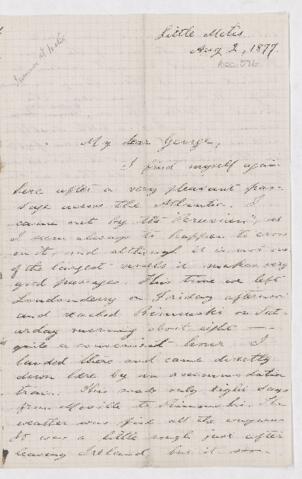 Little Metis
Aug 2, 1877.
Summer at Metis
My dear George,
I find myself again
here after a very pleasant pas-
sage across the Atlantic. I
came out by the Peruvian, as
I seem always to happen to cross
on it, and although it is not one
of the largest vessels it makes very
good passages. This time we left
Londonderry on Friday afternoon
and reached Rimouski on Sat-
urday morning about eight —
quite a convenient hour. I
landed there and came directly
down here by an accommodation
train. This made only eight days
from Moville to Rimouski. The
weather was fine all the
It was a little rough just after
leaving Ireland but it soon